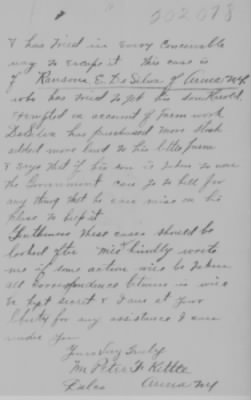 202078
& has tried in every conceivable
way to escape it This case is
of Ransone E. De Silva of Arena N.Y.
who has tried to get his son Harold
exempted on account of farm work
DeSilva has purchased more stock
added more land to his little farm
& says that if his son is taken to war
the Government can go to hell for
any thing that he can raise on his
place to help it
Gentlemen these cases should be
looked after kindly wrote
me if some action will be taken
all correspondence between us will
be kept secret & I am at your
liberty for any assistance I can
render you
Yours Very Truly
Mr Peter F. Kittle
Arena NY